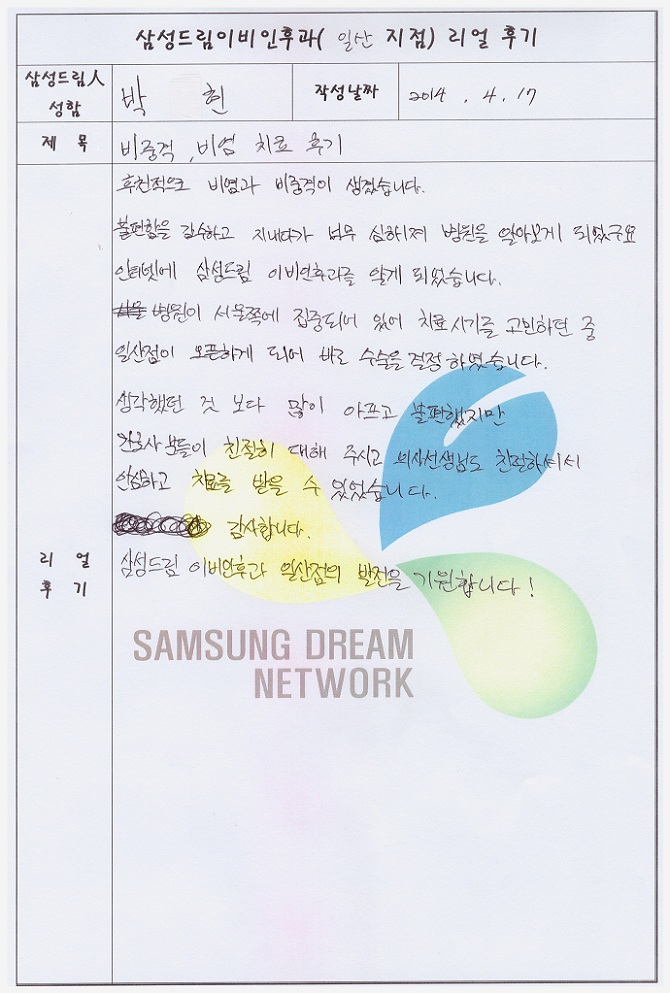 삼성드림이비인후과( 일산 지점) 리얼 후기
삼성드림人 성함
박 현
작성날짜
2014 . 4. 17
제 목
비중격, 비염 치료 후기
후천적으로 비염과 비중격이 생겼습니다.
불편함을 감수하고 지내다가 너무 심해져 병원을 알아보게 되었구요
인터넷에 삼성드림 이비인후과를 알게 되었습니다.
병원이 서울쪽에 집중되어 있어 치료시기를 고민하던 중
일산점이 오픈하게 되어 바로 수술을 결정하였습니다.
생각했던 것 보다 많이 아프고 불편했지만
간호사분들이 친절히 대해 주시고 의사선생님도 친절하셔서
안심하고 치료를 받을 수 있었습니다.
감사합니다.
삼성드림 이비인후과 일산점의 발전을 기원합니다!
리 얼
후 기
SAMSUNG DREAM
NETWORK